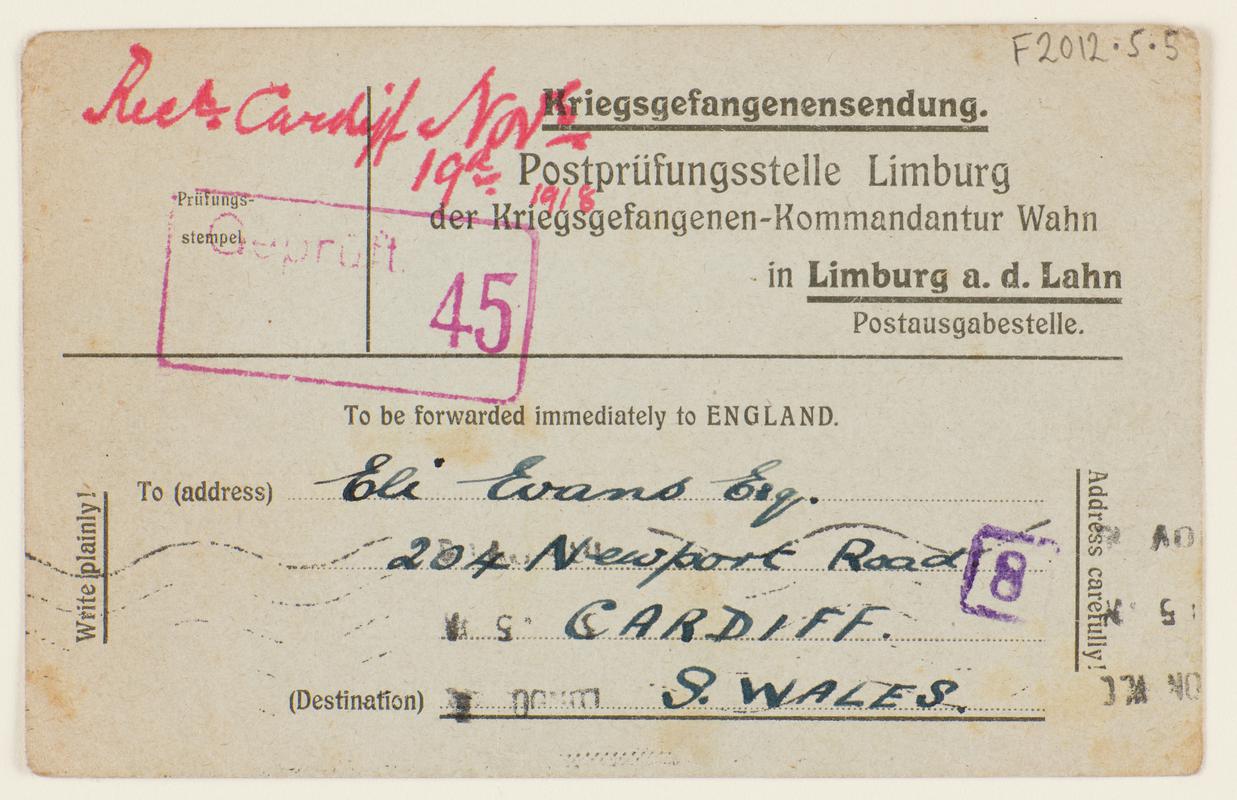 F2012.5.5
Recd. Cardiff Novr
19th
1918
Kriegsgefangenensendung.
Postprüfungsstelle Limburg
der Kriegsgefangenen-Kommandantur Wahn
in Limburg a. d. Lahn
Postausgabestelle.
Prüfungs-
stempel.
Geprüft.
45
To be forwarded immediately to ENGLAND.
Write plainly!
To (address) Eli Evans Esq.
204 Newport Road
8
CARDIFF.
(Destination) S. WALES.
Address carefully!